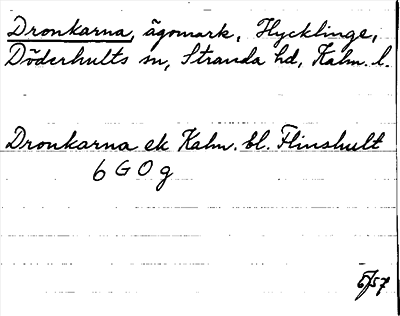 Dronkarna, ägomark, Hycklinge,
Döderhults sn, Stranda hd, Kalm. l.
Dronkarna ek Kalm. bl. Flinshult
6 G O g
5/57